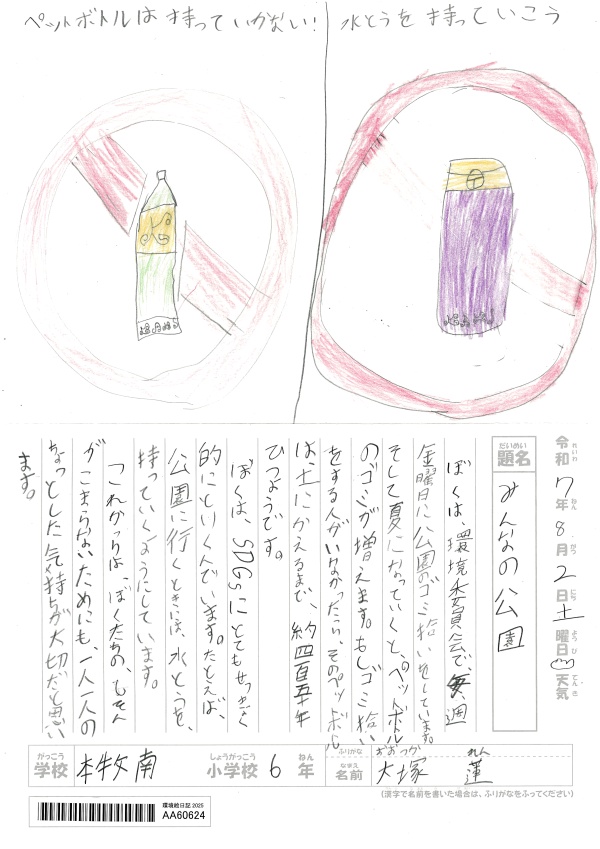 ペットボトルは持っていかない!
水とうを持っていこう
令和7年8月2日土曜日 天気
れいわ ねん がつ にち ようび てんき
だいめい
題名 みんなの公園
ぼくは、環境委員会で、毎週
金曜日に公園のゴミ拾いをしています。
そして夏になっていくと、ペットボトル
のゴミが増えます。もしゴミ拾い
をする人がいなかったら、そのペットボトル
は、土にかえるまで、約四百五十年
ひつようです。
ぼくは、SDGsにとてもせっきょく
的にとりくんでいます。たとえば、
公園に行くときには、水とうを、
持っていくようにしています。
これからは、ぼくたちの、しそん
がこまらないためにも、一人一人の
ちょっとした気持ちが大切だと思い
ます。
がっこう しょうがっこう ねん ふりがな おおつか れん
学校 本牧南 小学校 6年 なまえ 名前 大塚 蓮
(漢字で名前を書いた場合は、ふりがなをふってください)
環境絵日記 2025
AA60624